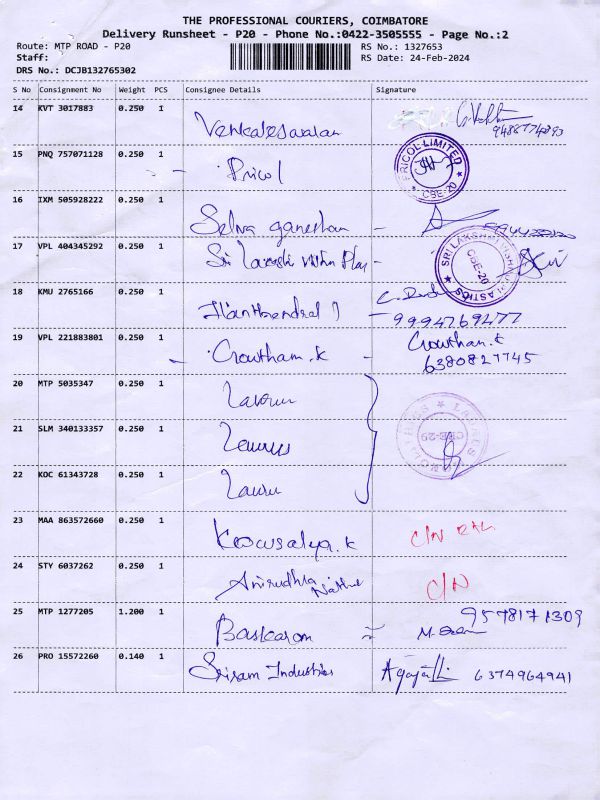 THE PROFESSIONAL COURIERS, COIMBATORE
Delivery Runsheet - P20 - Phone No.:0422-3505555 - Page No.:2
Route: MTP ROAD - P20 RS No.: 1327653
Staff: RS Date: 24-Feb-2024
DRS No.: DCJB132765302
S No Consignment No Weight PCS Consignee Details Signature
14 KVT 3017883 0.250 1 Venkateswaran
15 PNQ 757071128 0.250 1 Pricol PRICOL LIMITED CBE-20
16 IXM 505928222 0.250 1 Selva ganeshan
17 VPL 404345292 0.250 1 Sri SRI LAKSHMI PLASTICS CBE-20
18 KMU 2765166 0.250 1 9994769477
19 VPL 221883801 0.250 1 Gowtham.k Gowtham.k
6380827745
20 MTP 5035347 0.250 1
21 SLM 340133357 0.250 1
22 KOC 61343728 0.250 1
23 MAA 863572660 0.250 1 Kowsalya.k C/N
24 STY 6037262 0.250 1 Anirudhra C/N
25 MTP 1277205 1.200 1 Baskaran 9578171309
26 PRO 15572260 0.140 1 Sriram Industries 6374964941